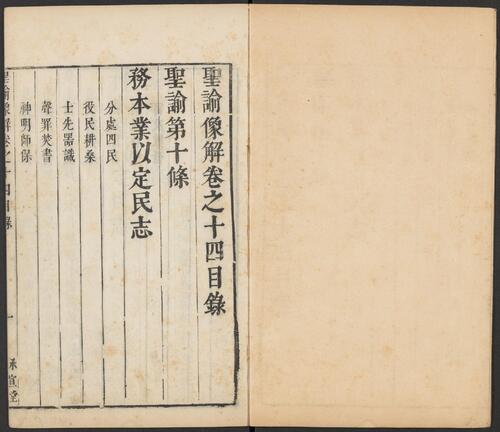 聖諭像解卷之十四目錄
聖諭第十條
務本業以定民志
分處四民
役民耕桑
士先器識
聲罪焚書
神明師保
聖諭像解卷之十四目錄
一
承宣堂